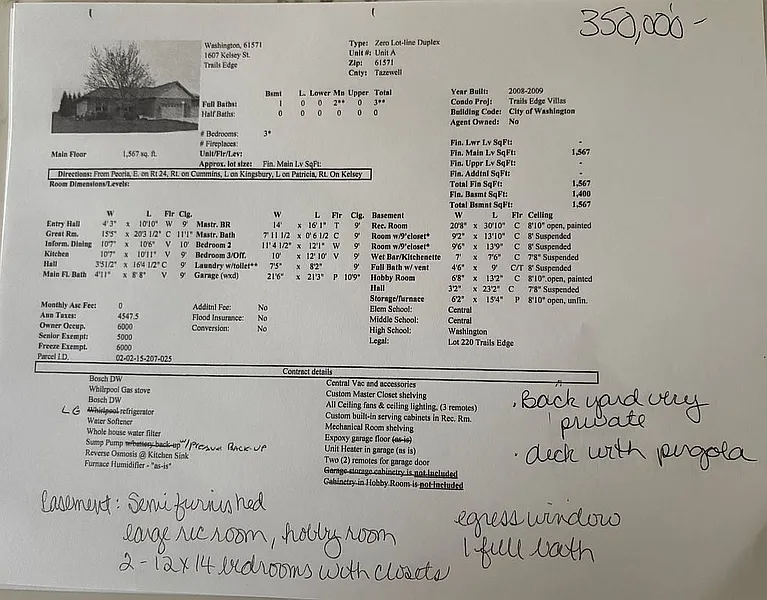 350,000 -
Washington, 61571
1607 Kelsey St.
Trails Edge
Type: Zero Lot-line Duplex
Unit #: Unit A
Zip: 61571
Cnty: Tazewell
Bsmt L. Lower Mn Upper Total
Full Baths: 1 0 0 2** 0 3**
Half Baths: 0 0 0 0 0 0
# Bedrooms: 3*
# Fireplaces:
Unit/Flr/Lev:
Approx. lot size: Fin. Main Lv SqFt:
Main Floor 1,567 sq. ft.
Year Built: 2008-2009
Condo Proj: Trails Edge Villas
Building Code: City of Washington
Agent Owned: No
Fin. Lwr Lv SqFt: -
Fin. Main Lv SqFt: 1,567
Fin. Uppr Lv SqFt: -
Fin. Addtnl SqFt: -
Total Fin SqFt: 1,567
Fin. Basmt SqFt: 1,400
Total Bsmnt SqFt: 1,567
Directions: From Peoria, E. on Rt 24, Rt. on Cummins, L on Kingsbury, L on Patricia, Rt. On Kelsey
Room Dimensions/Levels:
W L Flr Clg.
Entry Hall 4' 3" x 10'10" W 9'
Great Rm. 15'5" x 20'3 1/2" C 11'1"
Inform. Dining 10'7" x 10'6" V 10'
Kitchen 10'7" x 11'10" V 9'
Hall 3'5 1/2" x 16'4 1/2" C 9'
Main Fl. Bath 4'11" x 8' 8" V 9'
W L Flr Clg.
Mastr. BR 14' x 16' 1" T 9'
Mastr. Bath 7' 11 1/2 x 0' 6 1/2 C 9'
Bedroom 2 11' 4 1/2" x 12'1" W 9'
Bedroom 3/Off. 10' x 12' 10" V 9'
Laundry w/toilet** 7'5" x 8'2" 9'
Garage (wxd) 21'6" x 21'3" P 10'9"
Basement W L Flr Ceiling
Rec. Room 20'8" x 30'10" C 8'10" open, painted
Room w/9'closet* 9'2" x 13'10" C 8' Suspended
Room w/9'closet* 9'6" x 13'9" C 8' Suspended
Wet Bar/Kitchenette 7' x 7'6" C 7'8" Suspended
Full Bath w/ vent 4'6" x 9' C/T 8' Suspended
Hobby Room 6'8" x 13'2" C 8'10" open, painted
Hall 3'2" x 23'2" C 7'8" Suspended
Storage/furnace 6'2" x 15'4" P 8'10" open, unfin.
Monthly Asc Fee: 0
Ann Taxes: 4547.5
Owner Occup. 6000
Senior Exempt: 5000
Freeze Exempt. 6000
Parcel I.D. 02-02-15-207-025
Additnl Fee: No
Flood Insurance: No
Conversion: No
Elem School: Central
Middle School: Central
High School: Washington
Legal: Lot 220 Trails Edge
Contract details
Bosch DW
Whilrpool Gas stove
Bosch DW
LG Whirlpool refrigerator
Water Softener
Whole house water filter
Sump Pump w/battery back-up /PRESSURE BACK-UP
Reverse Osmosis @ Kitchen Sink
Furnace Humidifier - "as-is"
Central Vac and accessories
Custom Master Closet shelving
All Ceiling fans & ceiling lighting, (3 remotes)
Custom built-in serving cabinets in Rec. Rm.
Mechanical Room shelving
Expoxy garage floor (as-is)
Unit Heater in garage (as is)
Two (2) remotes for garage door
Garage storage cabinetry is not Included
Cabinetry in Hobby Room is not Included
. Back yard very
private
. deck with pergola
Basement: Semi furnished
large rec room, hobby room
2 - 12x14 bedrooms with closets
egress window
1 full bath